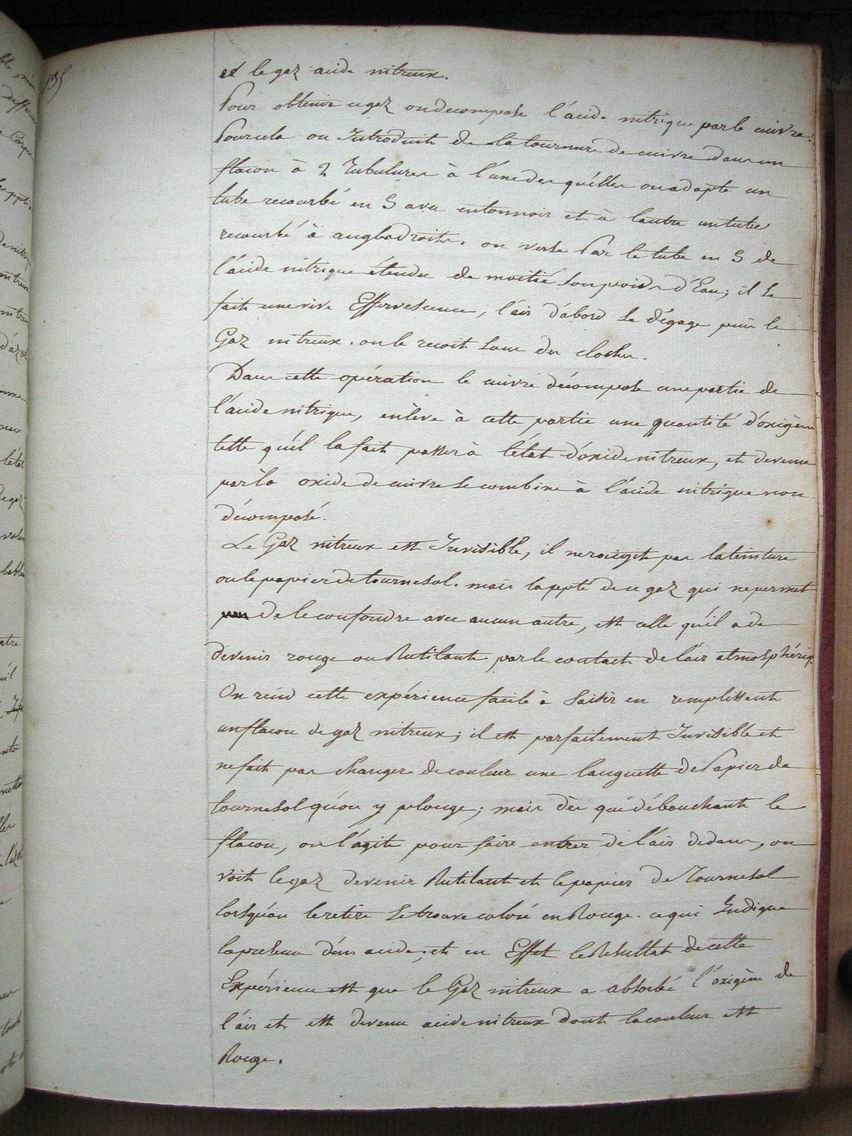 135
et le gaz acide nitreux.
Pour obtenir ce gaz on decompose l'acide nitrique par le cuivre.
Pour cela on Introduit de la tournure de cuivre dans un
flacon à 2 Tubulures à l'une des quélles on adapte un
tube recourbé en S avec entonnoir et à l'autre un tube
recourbé à angle droite. on verse Par le tube en S de
l'acide nitrique étendu de moitié son poids d'Eau; il se
fait une vive Effervescence, l'air d'abord se dégage puis le
Gaz nitreux. on le recoit sous des cloches.
Dans cette opération le cuivre décompose une partie de
l'acide nitrique, enlève à cette partie une quantité d'oxigène
telle qu'il la fait passer à l'état d'oxide nitreux, et devenu
par là oxide de cuivre se combine à l'acide nitrique non
décomposé.
Le Gaz nitreux est Invisible, il ne rougit pas la teinture
ou le papier de tournesol. mais la ppté de ce gaz qui ne permet
pas de le confondre avec aucun autre, est celle qu'il a de
devenir rouge ou Rutilante par le contact de l'air atmosphériq
On rend cette expérience facile à saisir en remplissant
un flacon de gaz nitreux; il est parfaitement Invisible et
ne fait pas changer de couleur une languette de Papier de
tournesol qu'on y plonge; mais dès qué débouchant le
flacon, on l'agite pour faire entrer de l'air dedans, on
voit le gaz devenir Rutilant et le papier de Tournesol
lorsqu'on le retire se trouve coloré en Rouge. ce qui Indique
la présence d'un acide; et en Effet le Résultat de cette
Expérience est que le Gaz nitreux a absorbé l'oxigène de
l'air et est devenu acide nitreux dont la couleur est
Rouge.